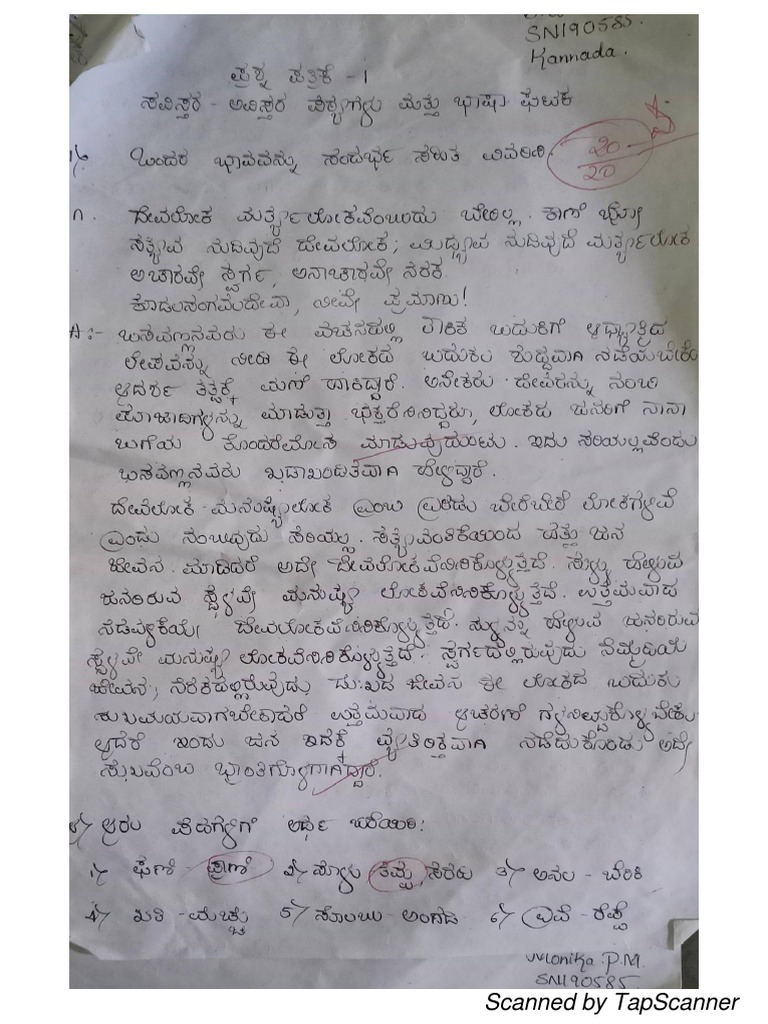 SN190585.
Kannada.
ಪ್ರಶ್ನ ಪತ್ರಿಕೆ - 1
ಸವಿಸ್ತರ - ಅವಿಸ್ತರ ಪಠ್ಯಗಳು ಮತ್ತು ಭಾಷಾ ಘಟಕ
ಒಂದರ ಭಾವವನ್ನು ಸಂದರ್ಭ ಸಹಿತ ವಿವರಿಸಿ.
20
20
೧. ದೇವಲೋಕ ಮರ್ತ್ಯಲೋಕವೆಂಬುದು ಬೇರಿಲ್ಲ ಕಾಣಿ ಭೋ
ಸತ್ಯವ ನುಡಿವುದೆ ದೇವಲೋಕ; ಮಿಥ್ಯವ ನುಡಿವುದೆ ಮರ್ತ್ಯಲೋಕ
ಅಚಾರವೇ ಸ್ವರ್ಗ, ಅನಾಚಾರವೇ ನರಕ
ಕೂಡಲಸಂಗಮದೇವಾ, ನೀವೇ ಪ್ರಮಾಣು!
A:- ಬಸವಣ್ಣನವರು ಈ ವಚನದಲ್ಲಿ ಬದುಕಿಗೆ
ಲೇಪವನ್ನು ನೀಡಿ ಈ ಲೋಕದ ಬದುಕು ಶುದ್ಧವಾಗಿ ನಡೆಯಬೇಕು
ಆದರ್ಶ ತತ್ವಕ್ಕೆ ಮಣೆ ಹಾಕಿದ್ದಾರೆ. ಅನೇಕರು ದೇವರನ್ನು ನಂಬಿ
ಮಾಡುತ್ತಾ ಲೋಕದ ಜನರಿಗೆ ನಾನಾ
ಬಗೆಯ ಮಾಡುವುದುಂಟು. ಇದು ಸರಿಯಲ್ಲವೆಂದು
ಬಸವಣ್ಣನವರು ಖಡಾಖಂಡಿತವಾಗಿ ಹೇಳಿದ್ದಾರೆ.
ದೇವಲೋಕ - ಮನುಷ್ಯಲೋಕ ಎಂಬ ಎರಡು ಬೇರೆಬೇರೆ ಲೋಕಗಳಿವೆ
ಎಂದು ನಂಬುವುದು ಸರಿಯಲ್ಲ. ಸತ್ಯವಂತಿಕೆಯಿಂದ ಹತ್ತು ಜನ
ಜೀವನ ಮಾಡಿದರೆ ಅದೇ ದೇವಲೋಕವೆನಿಸಿಕೊಳ್ಳುತ್ತದೆ. ಸುಳ್ಳು ಹೇಳುವ
ಜನರಿರುವ ಸ್ಥಳವೇ ಮನುಷ್ಯ ಲೋಕವೆನಿಸಿಕೊಳ್ಳುತ್ತದೆ. ಉತ್ತಮವಾದ
ನಡವಳಿಕೆಯೇ ದೇವಲೋಕವೆನಿಸಿಕೊಳ್ಳುತ್ತದೆ. ಸುಳ್ಳನ್ನು ಹೇಳುವ ಜನರಿರುವ
ಸ್ಥಳವೇ ಮನುಷ್ಯ ಲೋಕವೆನಿಸಿಕೊಳ್ಳುತ್ತದೆ. ಸ್ವರ್ಗದಲ್ಲಿರುವುದು ನೆಮ್ಮದಿಯ
ಜೀವನ; ನರಕದಲ್ಲಿರುವುದು ದುಃಖದ ಜೀವನ ಈ ಲೋಕದ ಬದುಕು
ಸುಖಮಯವಾಗಬೇಕಾದರೆ ಉತ್ತಮವಾದ ಆಚರಣೆ
ಆದರೆ ಇಂದು ಜನ ಇದಕ್ಕೆ ವ್ಯತಿರಿಕ್ತವಾಗಿ ನಡೆದುಕೊಂಡು ಅದೇ
ಸುಖವೆಂಬ
ಆರು ಪದಗಳಿಗೆ ಅರ್ಥ ಬರೆಯಿರಿ:
1) ಫಣಿ - 2) ತಪ್ಪು, ಕೆರಳು 3) ಅನಲ - ಬೆಂಕಿ
4) ಖತಿ - 5) - ಅಂಗಡಿ 6) ಎವೆ - ರೆಪ್ಪೆ
Monika P.M.
SN190585.
Scanned by TapScanner